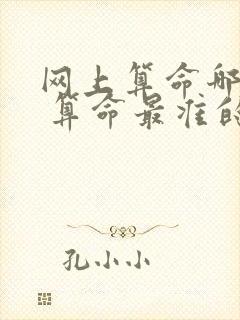 网上算命那
算命最准的
孔小小